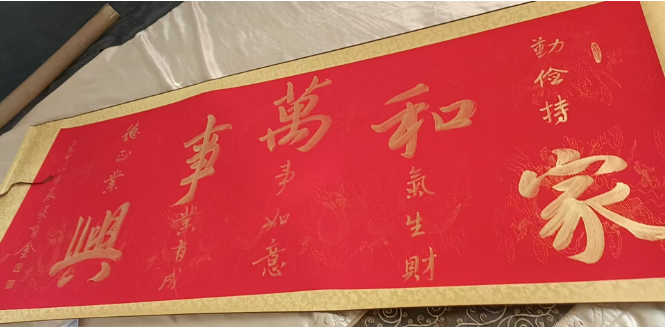 勤俭持家
和氣生財
萬事如意
事業有成
德正業興